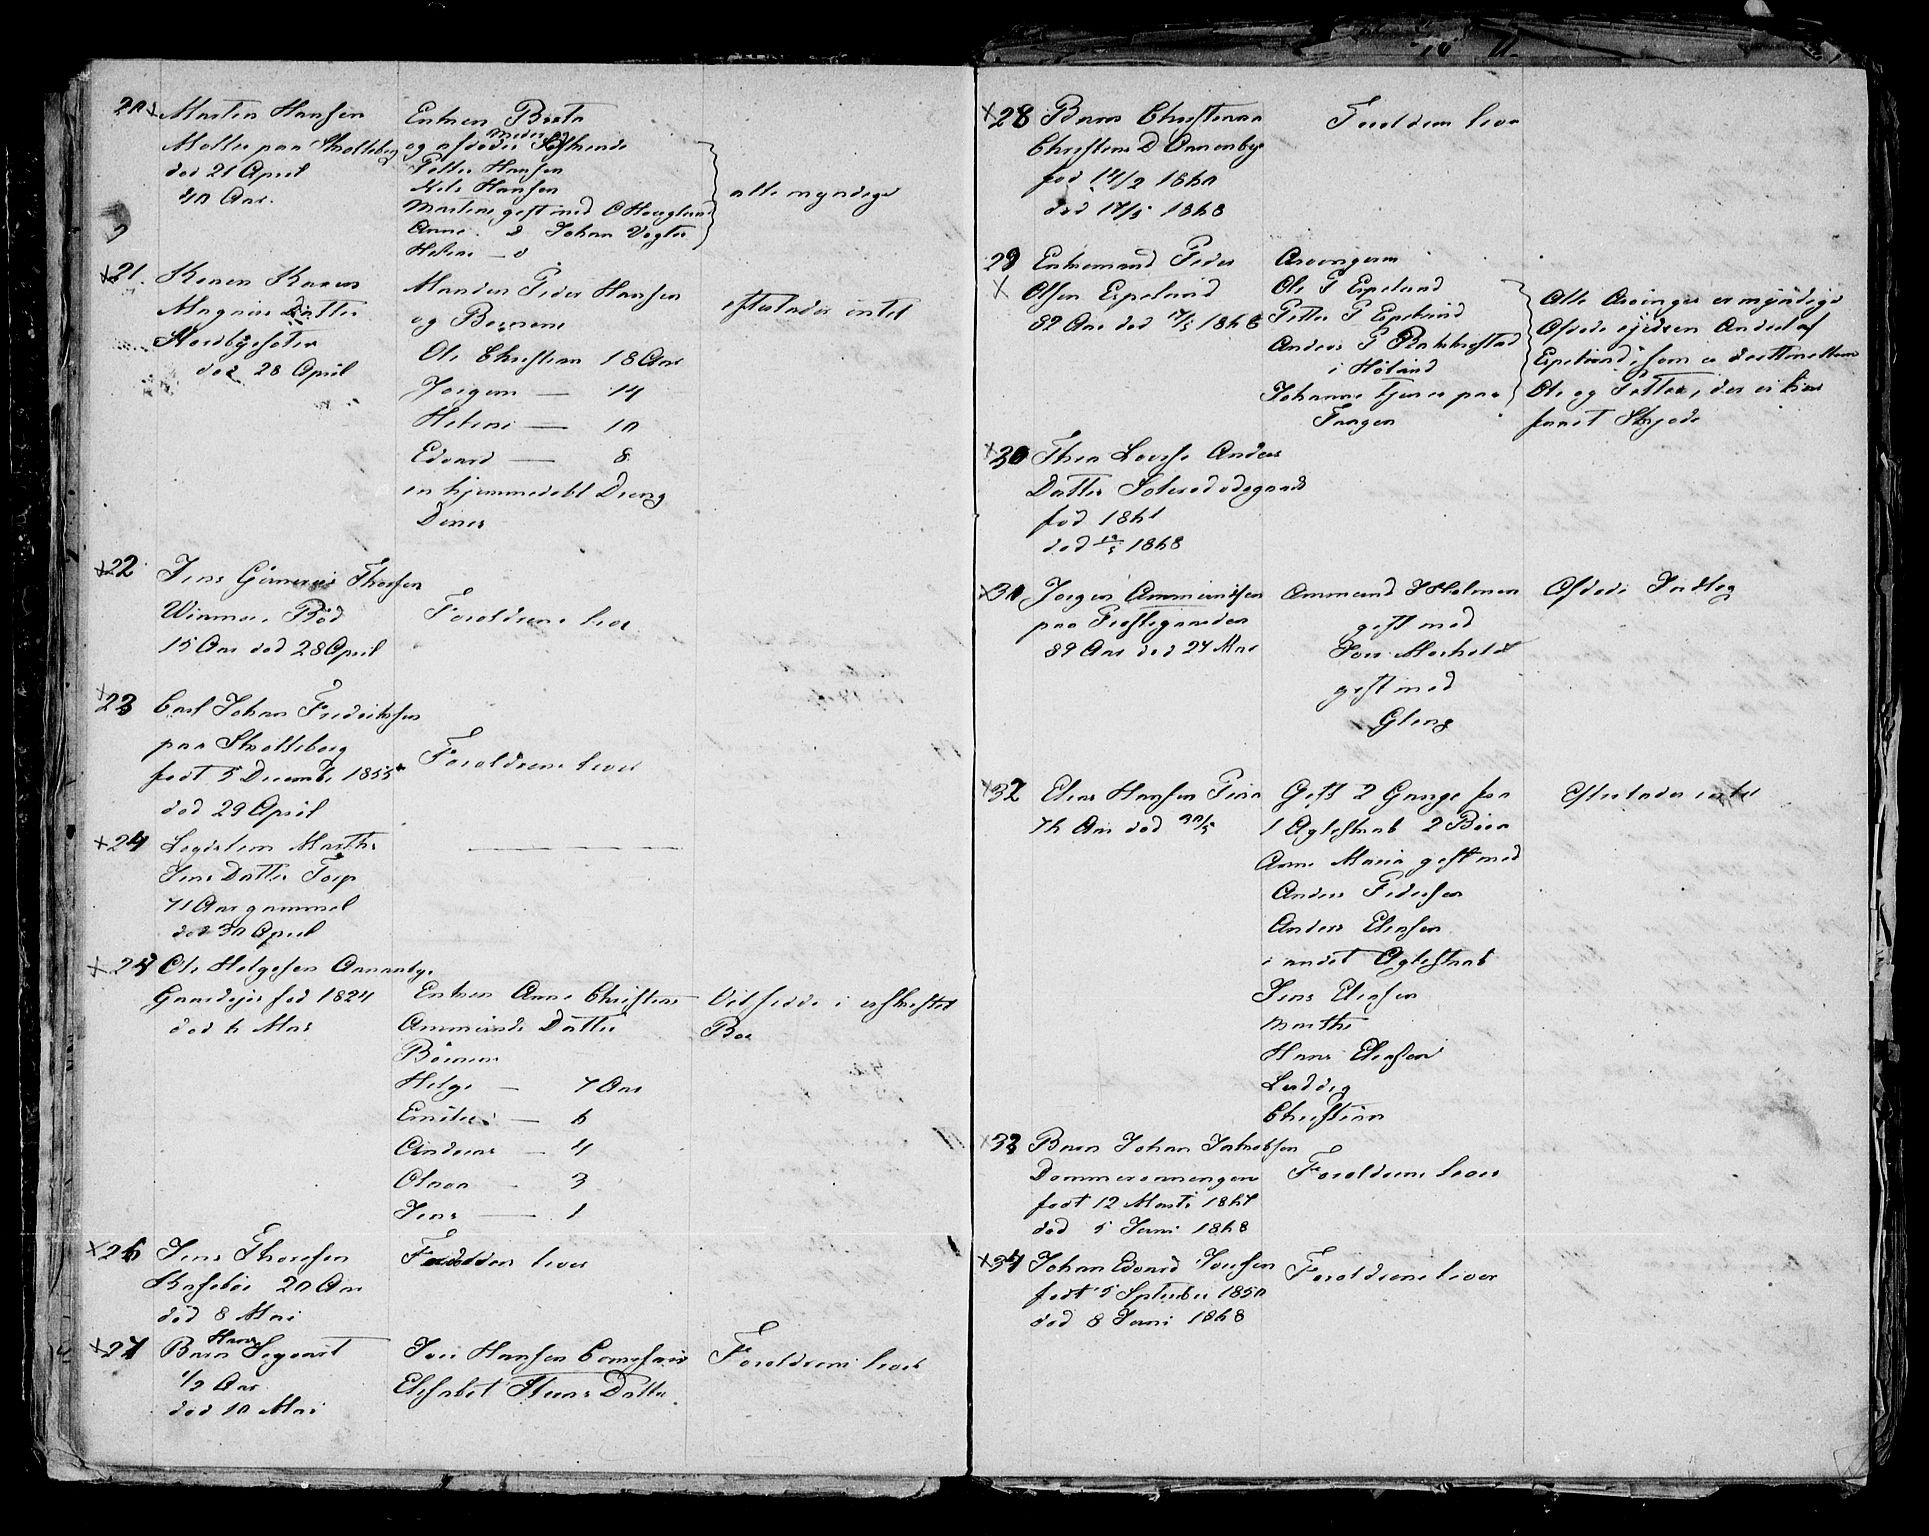 20 x Martin Hansen
Møller paa Stratteberg
død 21 April
40 Aar.
Enken Berta
og afdødes Søskende
Petter Hansen
Nils Hansen
Martine gift med O Houglund
Anne d Johan Vogter
Helene — d
alle myndige
x 21. Karen
Magnus Datter
død 28 April
Manden Peder Hansen
og Børnene
Ole Christian 18 Aar
Jørgen — 14
Helene — 10
Edvard — 8
en hjemmedøbt Dreng
efterlader intet
x 22 Jens Thorsen
Rød
15 Aar død 28 April
Foreldrene lever
x 23 Carl Johan Fredriksen
paa Stratteberg
født 5 December 1855
død 29 April
Foreldrene lever
x 24 Legdelem Marthe
Jens Datter Torp
71 Aar gammel
død 30 April
x 25 Ole Helgesen Annenby
Gaardejer fød 1824
død 6 Mai
Enken Anne Christine
Ammunds Datter
Børnene
Helge — 7 Aar
Emilie — 6
Andreas — 4
Olava — 3
Jens — 1
Bo
x 26 Jens Thoresen
20 Aar
død 8 Mai
Foreldrene lever
x 27 Barn Hans Sigvart
1/2 Aar
død 10 Mai
Hansen
Elisabet Datter
Foreldrene lever
x 28 Barn Christiane
Christens D Annenby
fød 14/2 1860
død 17/5 1868
Foreldrene lever
29 Enkemand Peder
x Olsen Espelund
82 Aar død 17/5 1868
Arvingerne
Ole P Espelund
Petter P Espelund
Anders P
i Høland
Johanne tjener paa
Tangen
Alle Arvinger er myndige
Afdøde ejede en Andeel af
Espelund, som er
Ole og Petter, der ei har
faaet Skjøde
x 30 Thea Lovise Anders
Datter
fød 1861
død 1868
x 31 Jørgen Ammundsen
paa Prestegaarden
82 Aar død 27 Mai
Ammund J Holmen
gift med
gift med
Gleng
Afdøde Indlæg
x 32 Elias Hansen
76 Aar død 30/5
Gift 2 Gange fra
1 Ægteskab 2 Børn
Anne Maria gift med
Anders Pedersen
Anders Eliasen
i andet Ægteskab
Jens Eliasen
Marthe
Hans Eliasen
Ludvig
Christian
Efterlader intet
x 33 Barn Johan Jakobsen
født 12 Marts 1867
død 5 Juni 1868
Foreldrene lever
x 34 Johan Edvard
født 5 September 1850
død 8 Juni 1868
Foreldrene lever